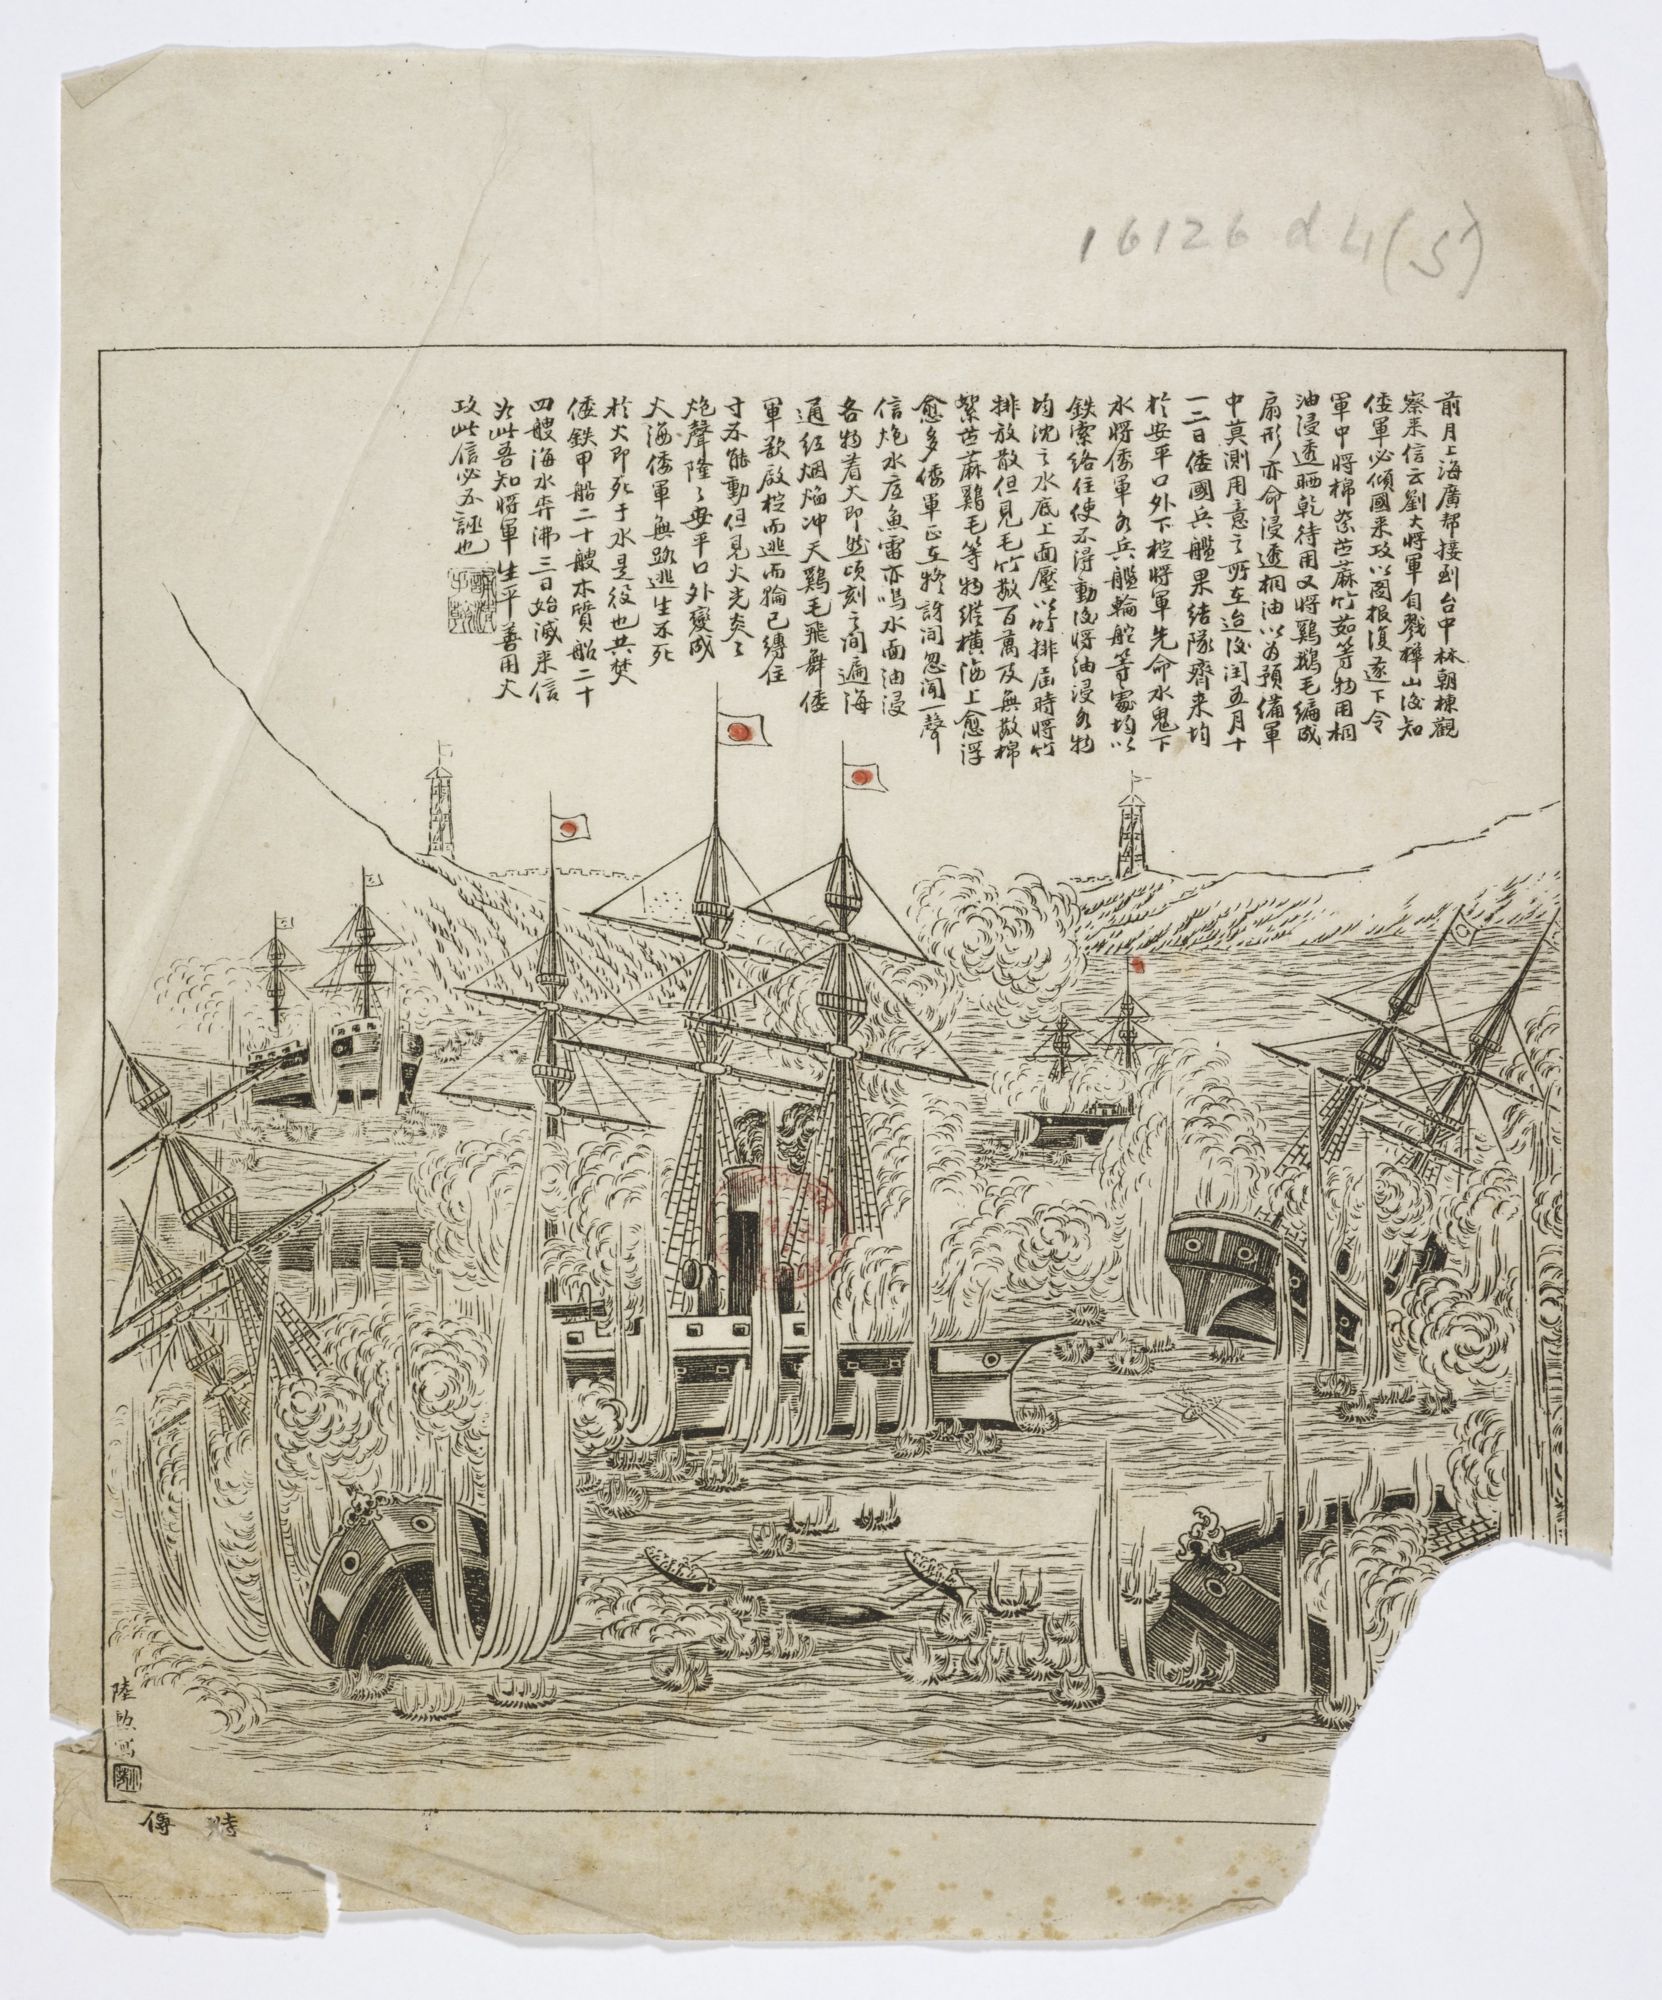 16126 d 4 (5)
前月上海廣帮接到台中林朝棟觀
察来信云劉大將軍自戮樺山後知
倭軍必傾國来攻以啚报復遂下令
軍中將棉絮苎蔴竹茹等物用桐
油浸透晒乾待用又將鷄鵝毛編成
扇形亦命浸透桐油以為預備軍
中莫測用意之所在迨後闰五月十
一二日倭國兵艦果结隊齊来均
於安平口外下椗將軍先命水鬼下
水將倭軍各兵艦輪舵等處均以
鉄索络住使不得動後將油浸各物
均沈之水底上面壓以竹排届時將竹
排放散但見毛竹数百萬及無数棉
絮苎蔴鷄毛等物縱横海上愈浮
愈多倭軍正在驚訝间忽闻一聲
信炮水底魚雷亦鳴水面油浸
各物着火即然頃刻之间遍海
通红烟焰冲天鷄毛飛舞倭
軍欲啟椗而逃而輪已縛住
寸不能動但見火光炎々
炮聲隆々安平口外变成
火海倭軍無路逃生不死
於火即死于水是役也共焚
倭鉄甲船二十艘木質船二十
四艘海水弈沸三日始滅来信
如此吾知將軍生平善用火
攻此信必不誣也
陸 寫
傳